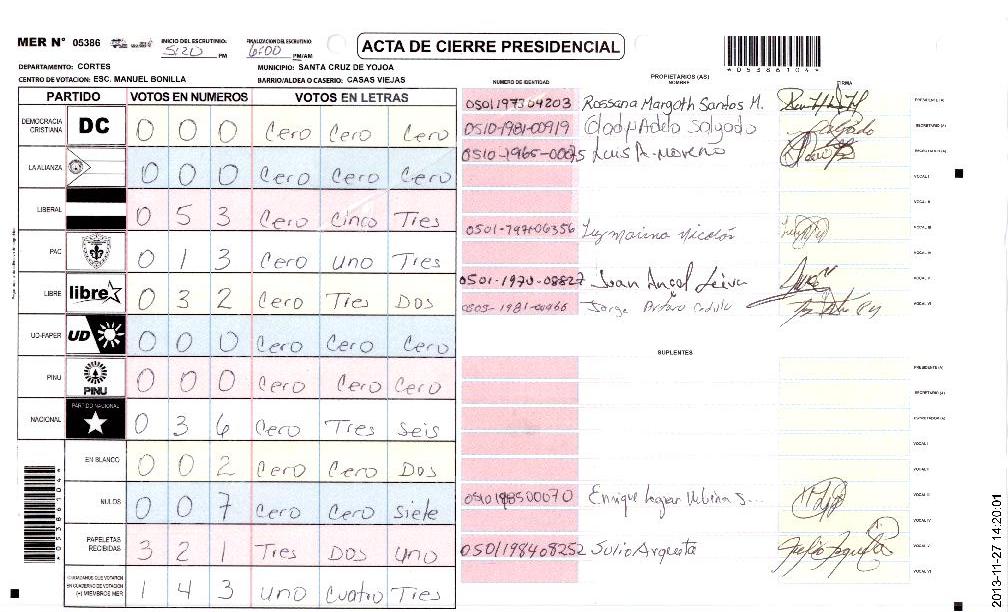 MER N° 05386
INICIO DEL ESCRUTINIO: 5:20 PM
FINALIZACION DEL ESCRUTINIO 6:00 PM/AM
ACTA DE CIERRE PRESIDENCIAL
*05386104*
DEPARTAMENTO: CORTES
MUNICIPIO: SANTA CRUZ DE YOJOA
CENTRO DE VOTACION: ESC. MANUEL BONILLA
BARRIO/ALDEA O CASERIO: CASAS VIEJAS
PARTIDO VOTOS EN NUMEROS VOTOS EN LETRAS
DEMOCRACIA CRISTIANA DC 0 0 0 Cero Cero Cero
LA ALIANZA 0 0 0 Cero Cero Cero
LIBERAL 0 5 3 Cero Cinco Tres
PAC 0 1 3 Cero uno Tres
LIBRE libre 0 3 2 Cero Tres Dos
UD-FAPER UD 0 0 0 Cero Cero Cero
PINU PINU 0 0 0 Cero Cero Cero
NACIONAL PARTIDO NACIONAL 0 3 6 Cero Tres Seis
EN BLANCO 0 0 2 Cero Cero Dos
NULOS 0 0 7 Cero Cero Siete
PAPELETAS RECIBIDAS 3 2 1 Tres Dos uno
CIUDADANOS QUE VOTARON EN CUADERNO DE VOTACION (+) MIEMBROS MER 1 4 3 uno Cuatro Tres
*05386104*
PROPIETARIOS (AS)
NUMERO DE IDENTIDAD NOMBRE FIRMA
0501197304203 Rossana Margoth Santos M. PRESIDENTE (A)
0510-1981-00919 Salgado SECRETARIO (A)
0510-1965-00075 Luis A. Moreno
VOCAL I
VOCAL II
Luz Marina Nicolás VOCAL III
VOCAL IV
0501-1970-08827 Juan Angel Leiva VOCAL V
0505-1981-00966 Jorge Arturo VOCAL VI
SUPLENTES
PRESIDENTE (A)
SECRETARIO (A)
VOCAL I
VOCAL II
0510198500070 Enrique VOCAL III
VOCAL IV
0501198408252 Julio Argueta VOCAL V
VOCAL VI
2013-11-27 14:20:01